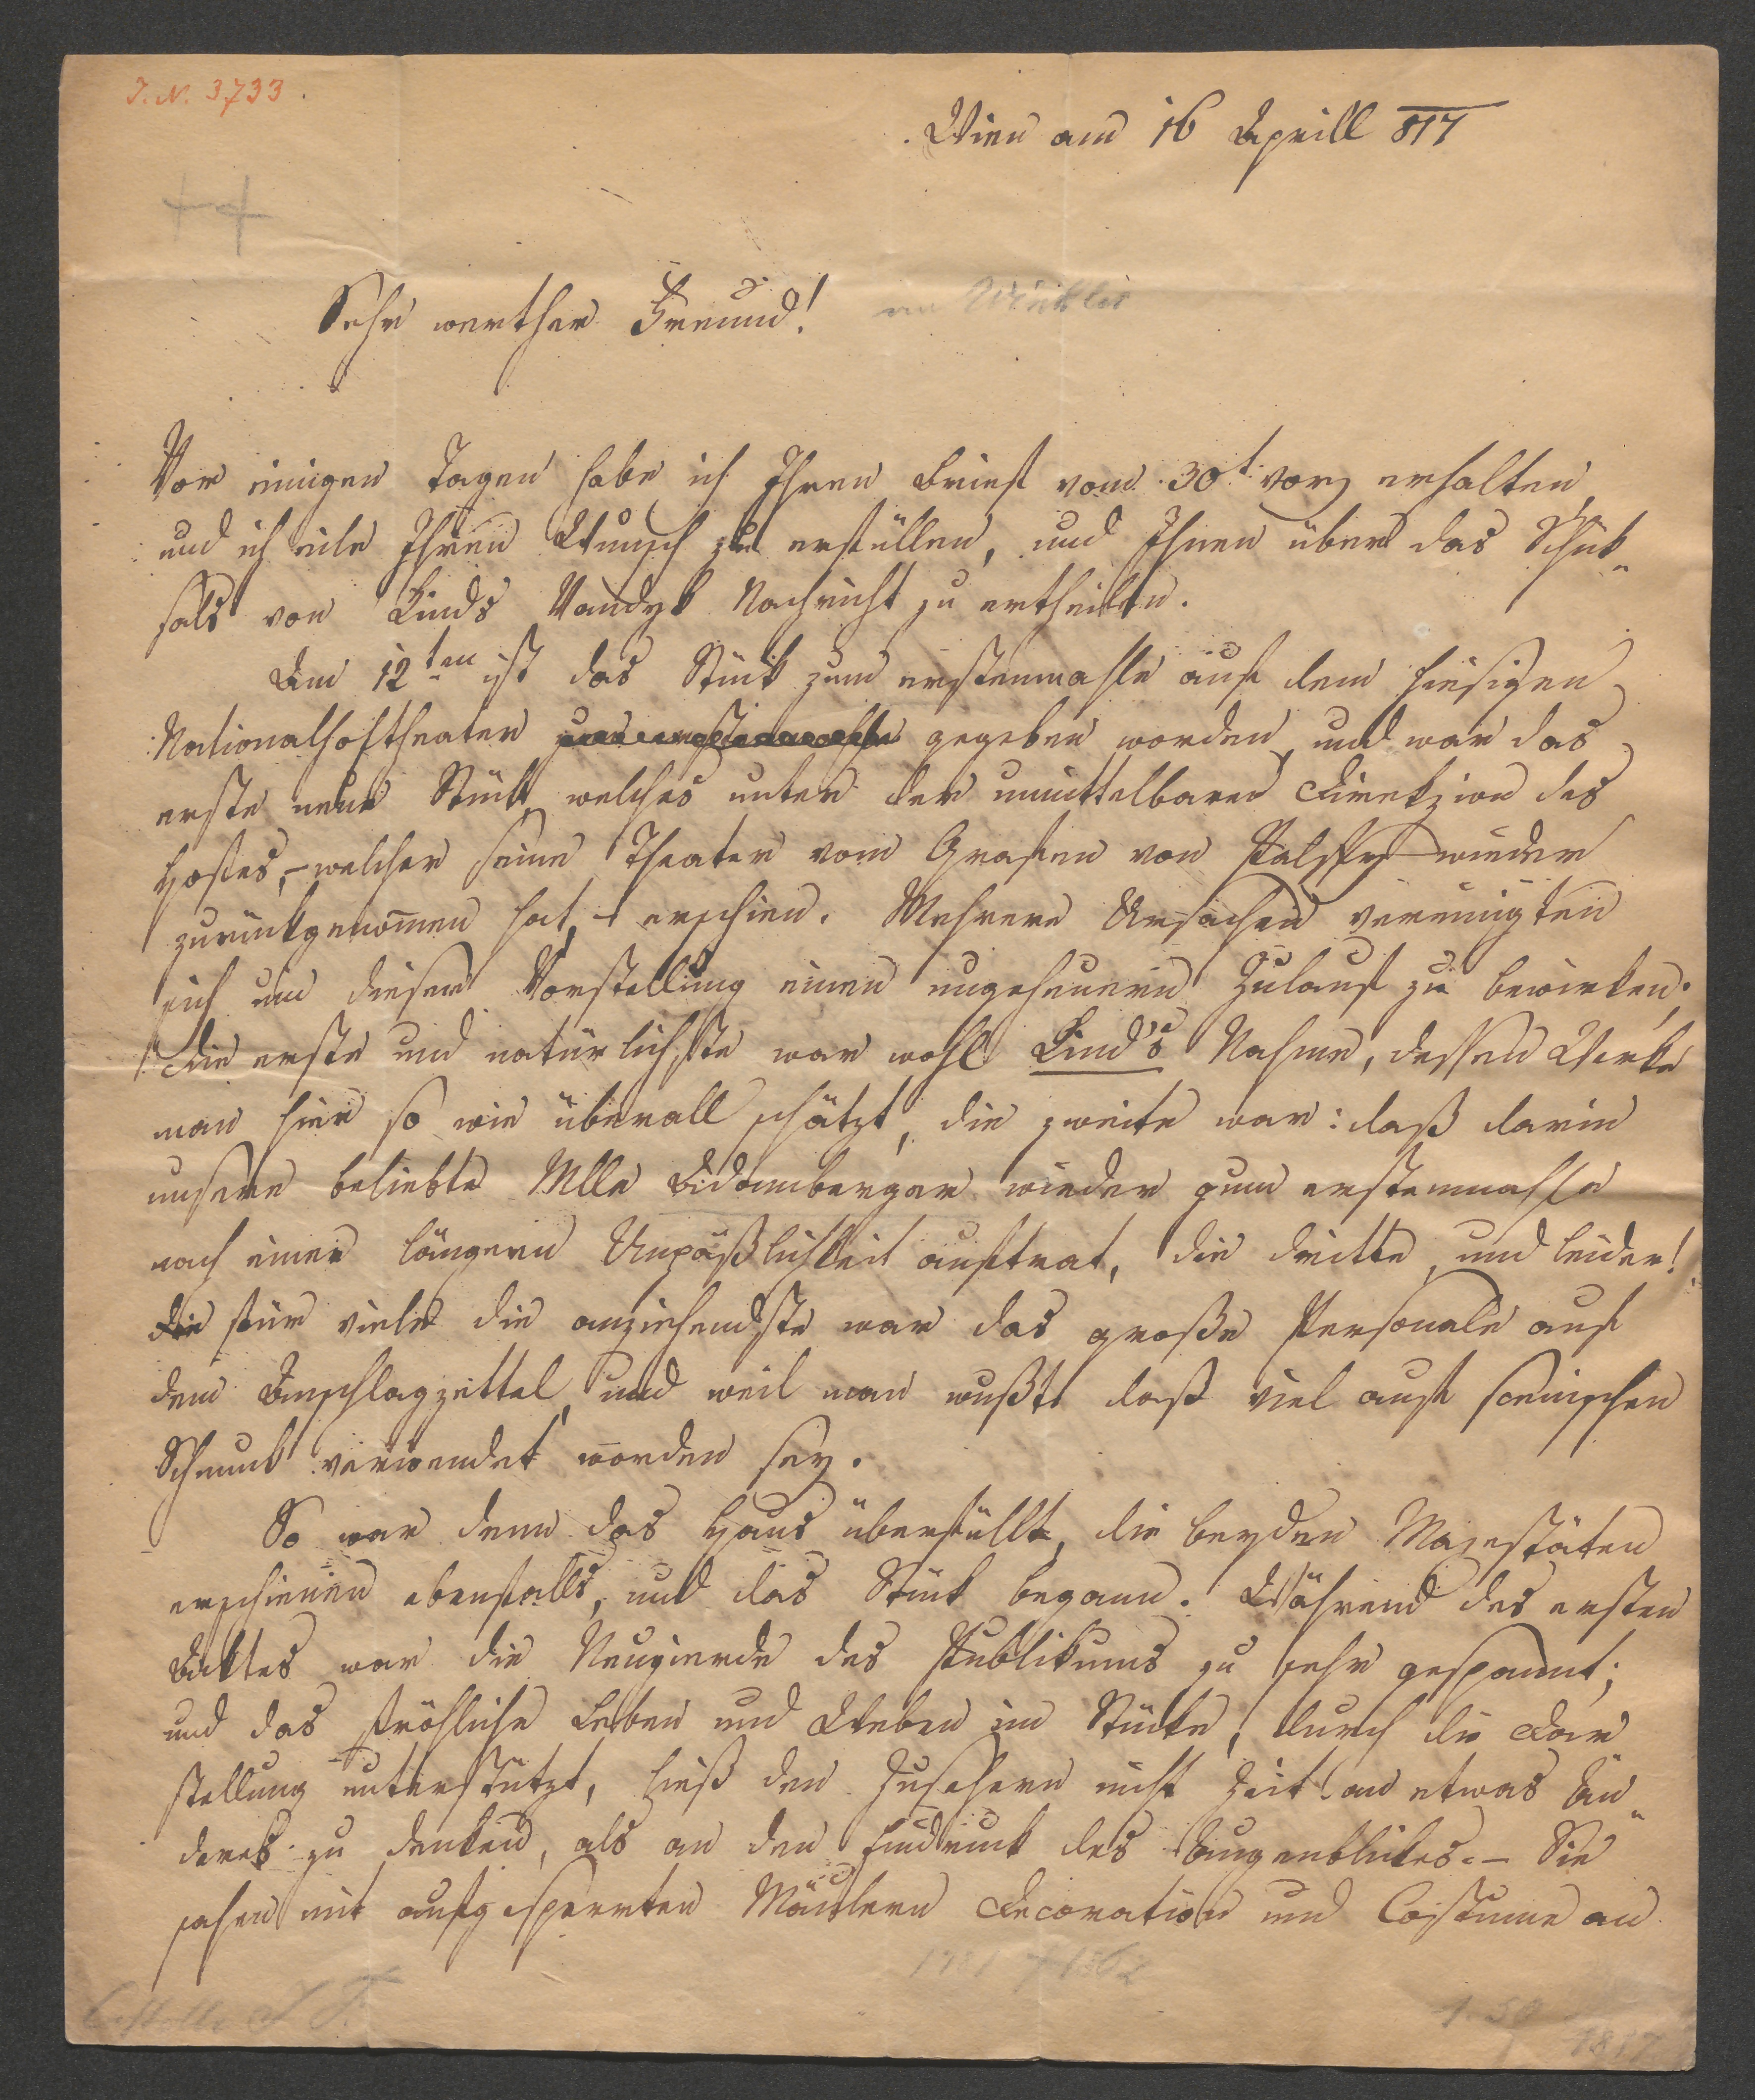 I. N. 3733.
Wien am 16 Aprill 817
Sehr werther Freund!
an Winkler
Vor einigen Tagen habe ich Ihren Brief vom 30t vor erhalten,
und ich eile Ihren Wunsch zu erfüllen, und Ihnen über das Schik-
sals von Kinds Vandyk Nachricht zu ertheilen.
Am 12ten ist das Stük zum erstenmahle auf dem hiesigen
Nationalhoftheater zum erstenmahle gegeben worden, und war das
erste neue Stük, welches unter der unmittelbaren Direkzion des
Hofes, – welcher seine Theater vom Grafen von Palffy wieder
zurückgenom̄en hat, – erschien. Mehrere Ursachen vereinigten
sich um dieser Vorstellung einen ungeheuern Zulauf zu bewirken.
Die erste und natürlichste war wohl Kind's Nahme, dessen Werke
man hier so wie überall schätzt, die zweite war: daß darin
unsere beliebte Mlle Adamberger wieder zum erstenmahle
nach einer längern Unpäßlichkeit auftrat, die dritte, und leider!
die für viele die anziehendste war das große Personale auf
dem Anschlagzettel, und weil man wußte daß viel auf scenischen
Schmuck verwendet worden sey.
So war denn das Haus überfüllt, die beyden Majestäten
erschienen ebenfalls, und das Stük begann. Während des ersten
Aktes war die Neugierde des Publikums zu sehr gespannt;
und das fröhliche Leben und Weben im Stücke, durch die Dar
stellung unterstützt, ließ den Zusehern nicht Zeit an etwas An-
deres zu denken, als an den Eindruck des Augenblickes. – Sie
sahen mit aufgesperrten Mäulern Decoration und Costume an
1781 † 1862
Castelli I. F.
1.50
1817